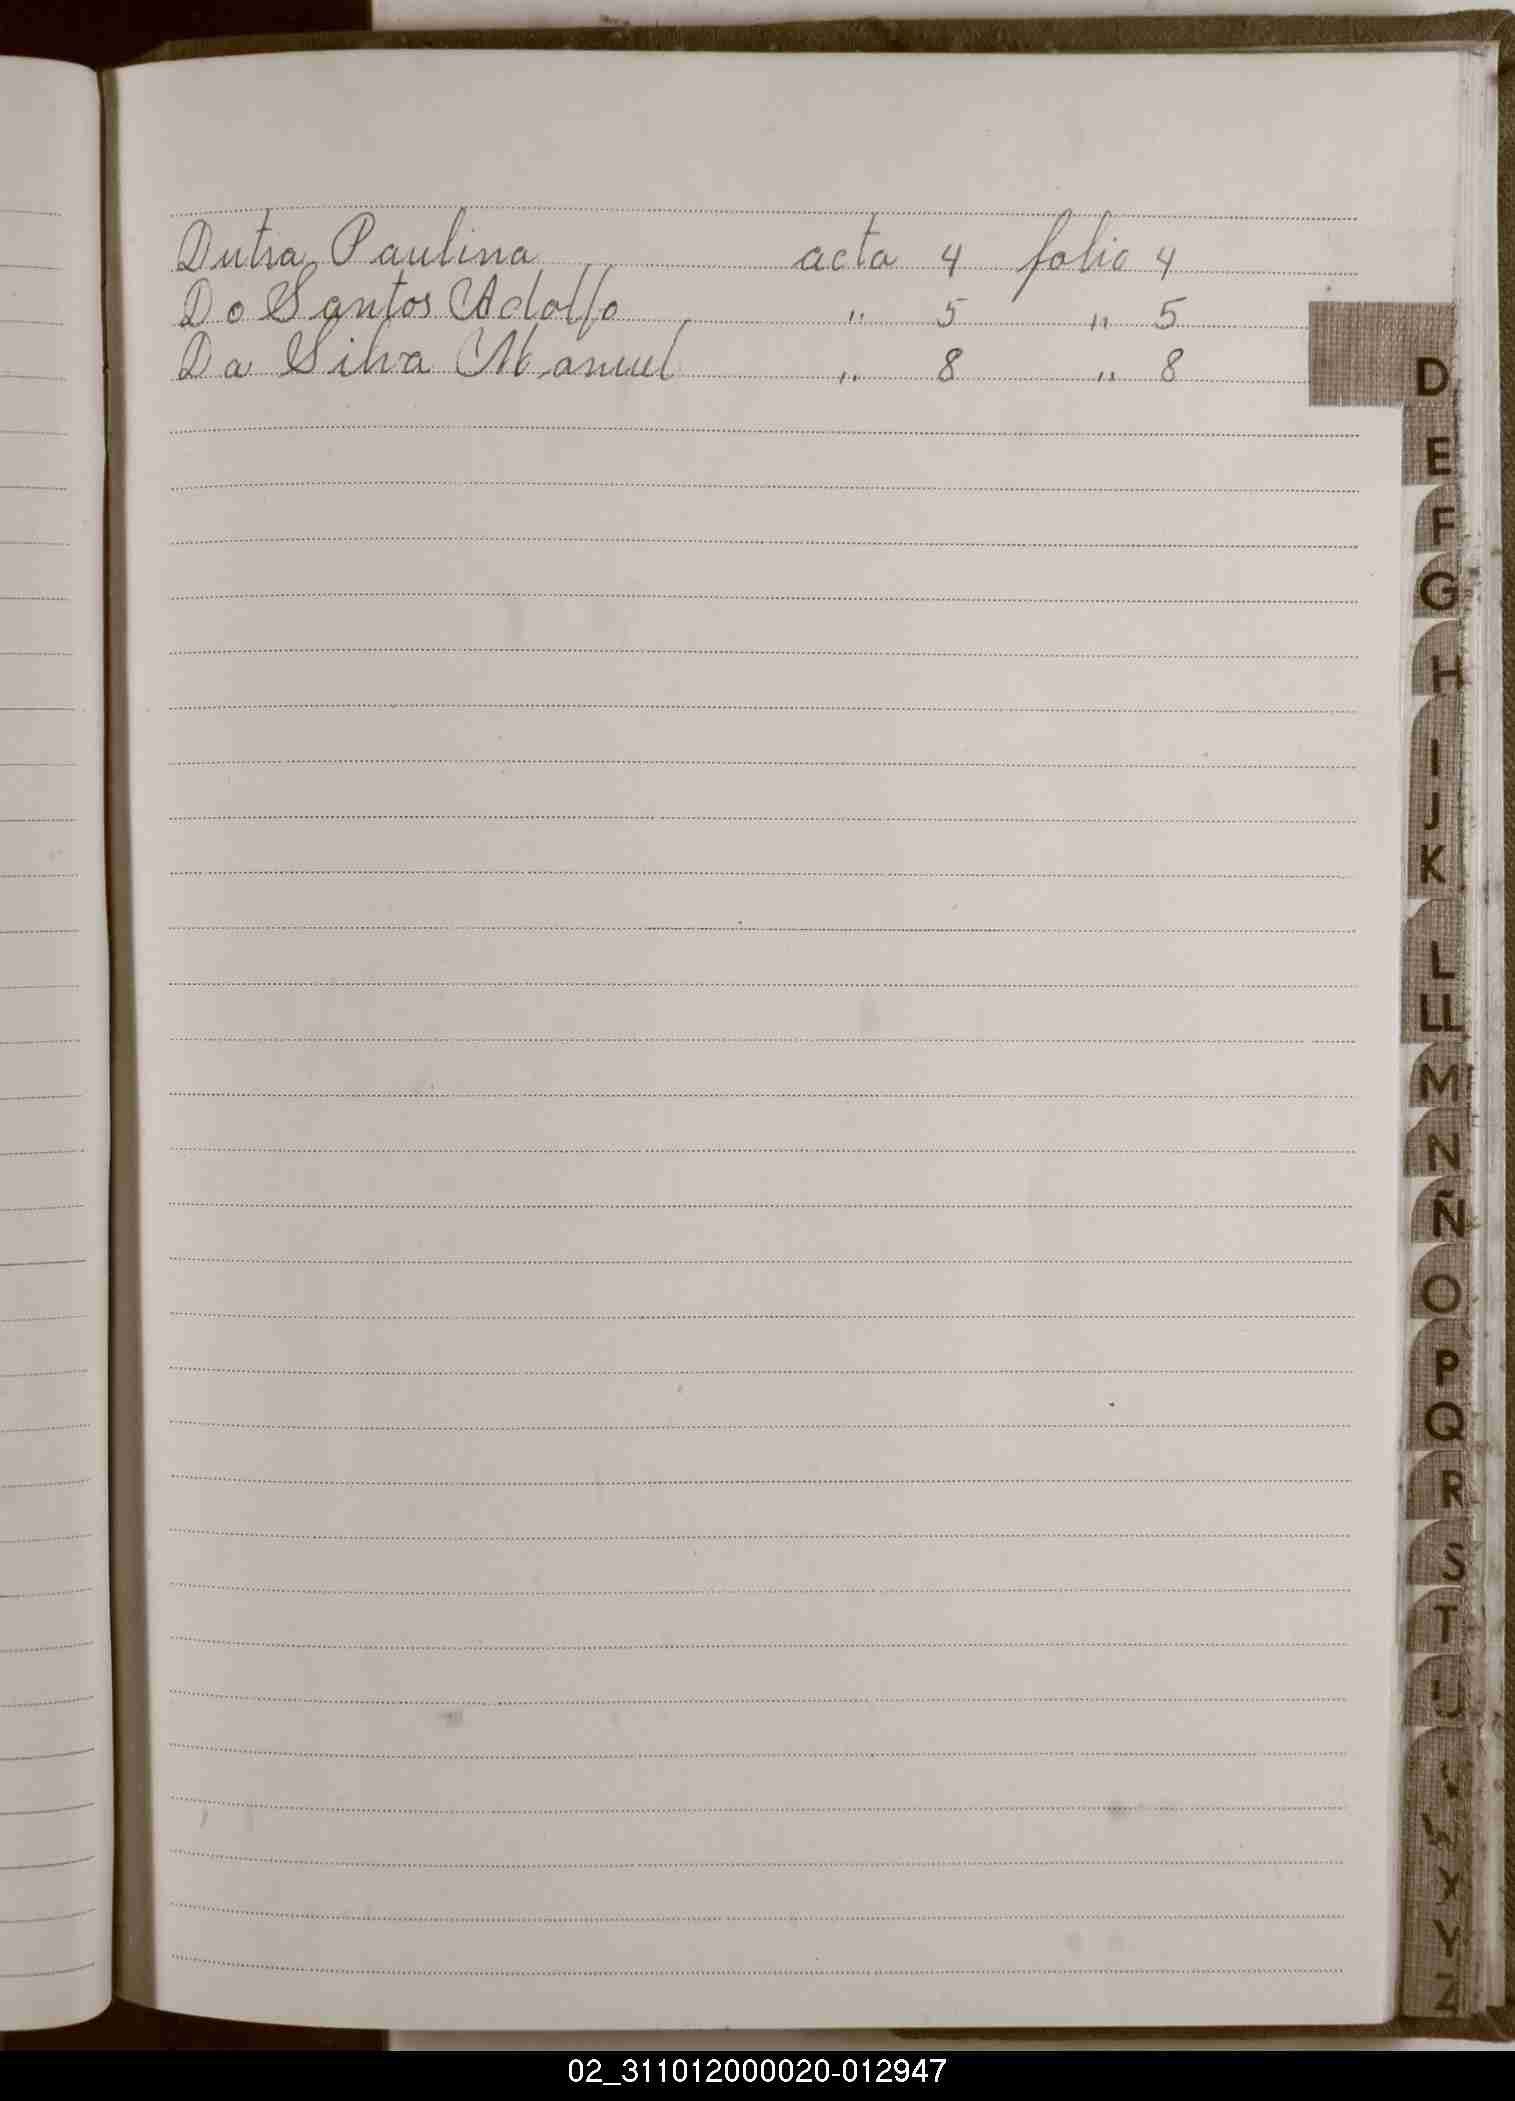 Dutra Paulina acta 4 folio 4
Do Santos Adolfo " 5 " 5
Da Silva Manuel " 8 " 8
D
E
F
G
H
I
J
K
L
LL
M
N
Ñ
O
P
Q
R
S
T
U
X
Y
Z
02_311012000020-012947